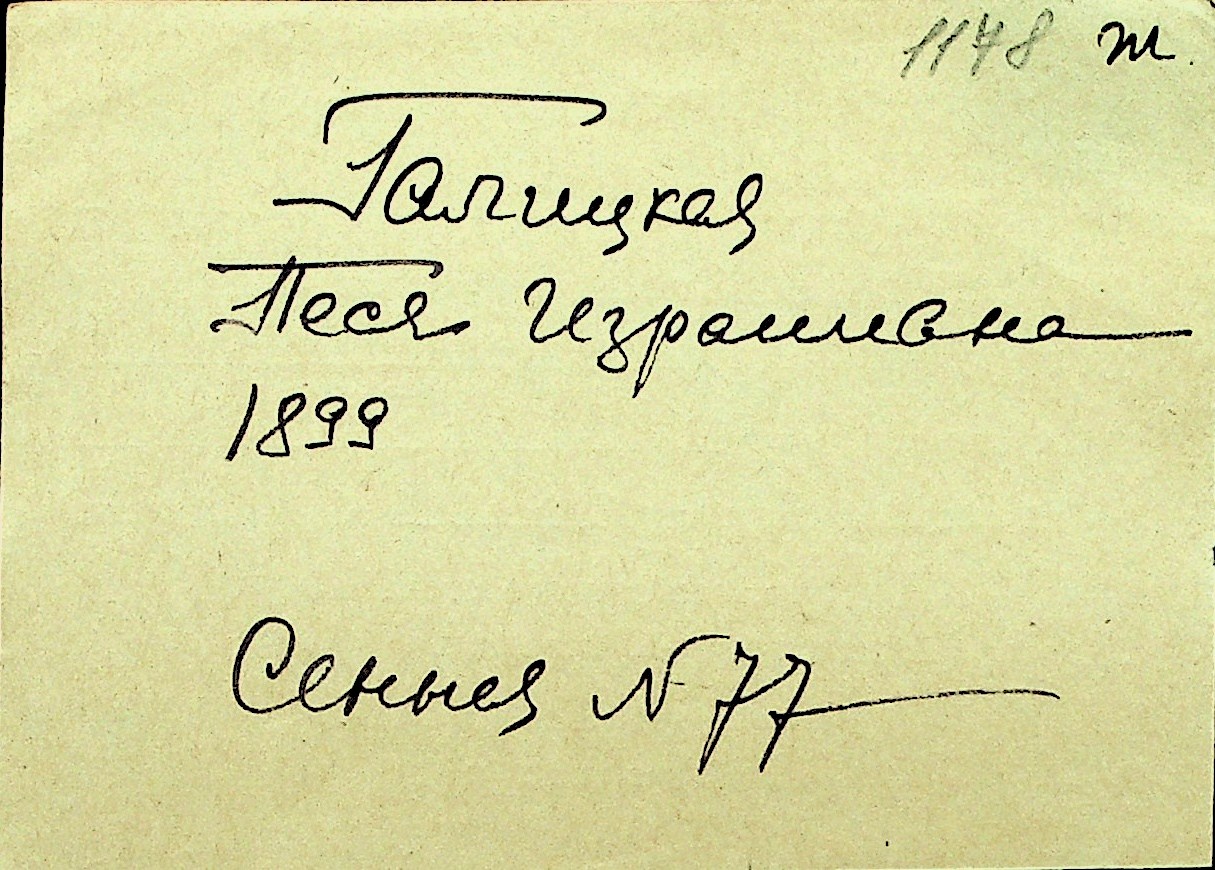 1178 т.
Галицкая
Песя Израилевна
1899
Сенная N 77